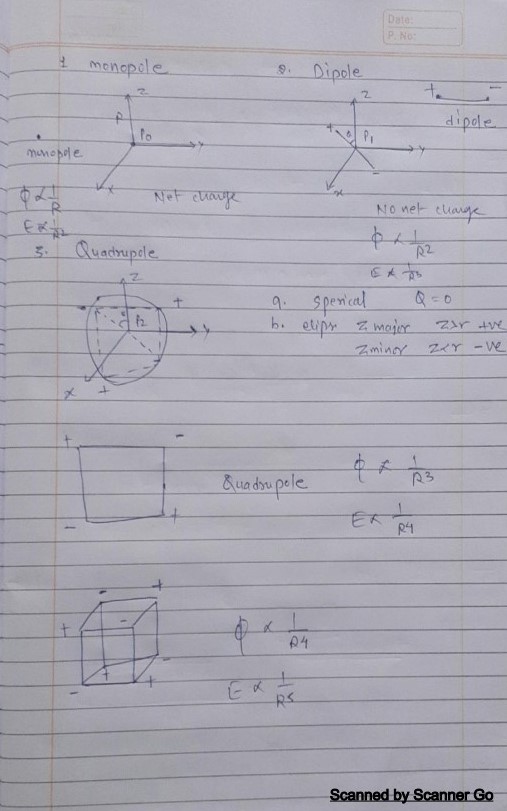 Date:
P. No:
1 monopole
z
P
P0
y
x
monopole
Net charge
ϕ ∝ 1/R
E ∝ 1/R2
2. Dipole
z
+
θ
P1
y
-
x
+ -
dipole
No net charge
ϕ ∝ 1/R2
E ∝ 1/R3
3. Quadrupole
z
- +
θ P2
y
x
+
a. sperical Q = 0
b. elips z major z>r +ve
z minor z<r -ve
+ -
- +
Quadrupole
ϕ ∝ 1/R3
E ∝ 1/R4
- +
+ -
+ -
- +
ϕ ∝ 1/R4
E ∝ 1/R5
Scanned by Scanner Go